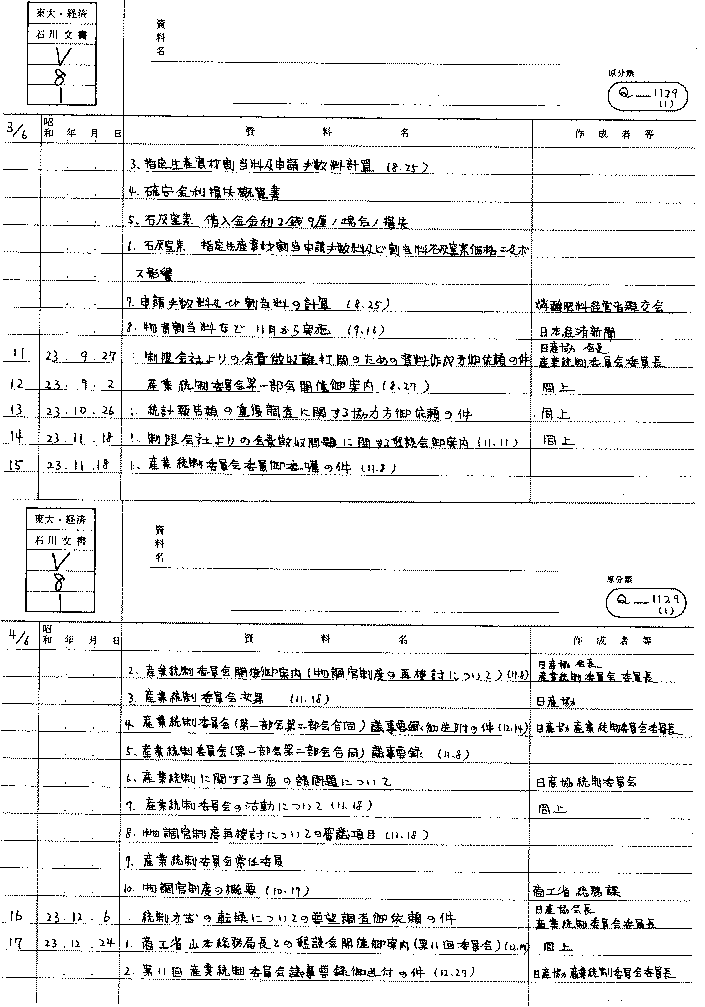 東大・経済
石川文書
V
8
1
資料名
原分類
Q—1129
(1)
3/6 昭和 年 月 日 資料名 作成者等
3. 指定生産資材割当料及申請手数料計算 (8.25)
4. 確安金利損失概算書
5. 石灰窒素 借入金金利2銭9厘ノ場合ノ損失
6. 石灰窒素 指定生産資材割当申請手数料及ビ割当料石灰窒素価格ニ及ボ
ス影響
7. 申請手数料及び割当料の計算 (8.25) 燐酸肥料経営者懇交会
8. 物資割当料など 11月から実施 (9.16) 日本経済新聞
日産協 会長
11 23.9.27 1. 制限会社よりの会費徴収難打開のための資料作成予御依頼の件 産業統制委員会委員長
12 23.9.2 産業統制委員会第一部会開催御案内 (8.27) 同上
13 23.10.26 1. 統計報告類の重複調査に関する協力方御依頼の件 同上
14 23.11.18 1. 制限会社よりの会費徴収問題に関する懇談会御案内 (11.11) 同上
15 23.11.18 1. 産業統制委員会委員御委嘱の件 (11.8)
東大・経済
石川文書
V
8
1
資料名
原分類
Q—1129
(1)
4/6 昭和 年 月 日 資料名 作成者等
日産協 会長
2. 産業統制委員会開催御案内(物調官制度の再検討について) (11.8) 産業統制委員会委員長
3. 産業統制委員会次第 (11.18) 日産協
4. 産業統制委員会(第一部会第二部会合同)議事要録御送付の件 (12.14) 日産協産業統制委員会委員長
5. 産業統制委員会(第一部会第二部会合同)議事要録 (11.8)
6. 産業統制に関する当面の諸問題について 日産協統制委員会
7. 産業統制委員会の活動について (11.18) 同上
8. 物調官制度再検討についての審議項目 (11.18)
9. 産業統制委員会常任委員
10. 物調官制度の概要 (10.19) 商工省 総務課
日産協会長
16 23.12.6 統制方式の転換についての要望調査御依頼の件 産業統制委員会委員長
17 23.12.24 1. 商工省山本総務局長との懇談会開催御案内(第11回委員会) 同上
2. 第11回産業統制委員会議事要録御送付の件 (12.27) 日産協産業統制委員会委員長